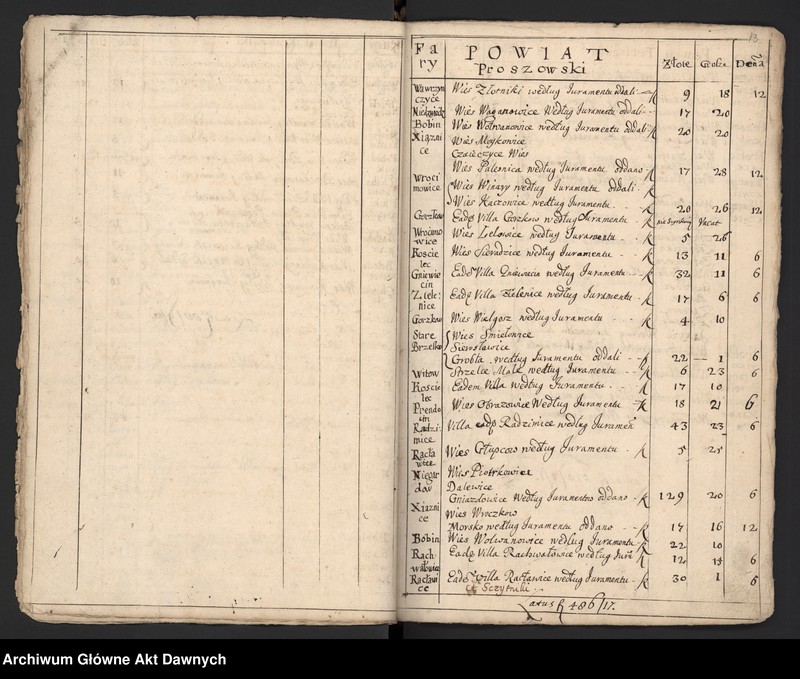 Fa
ry
POWIAT
Proszowski
Złote Grosze Dena
13
Wawrzyn
czyce Wies Złotniki według Juramentu oddali 9 18 12
Wies Waganowice Według Juramentu oddali 17 20
Bobin Wies Wolwanowice według Juramentu oddali 20 20
Xiązni
ce Wies Moykowice
Czaięczyce Wies
Wies Palesnica według Juramentu oddano 17 28 12
Wroci
mowice Wies Winary według Juramentu oddali
Wies Kaczowice według Juramentu 20 26 12
Gorzkow Eadē Villa Gorzkow według Juramentu Vacat
Wrocimo
wice Wies Lelowice według Juramentu 5 26
Koscie
lec Wies Sieradzice według Juramentu 13 11 6
Gniewie
cin Eadē Villa Gniewiecin według Juramentu 32 11 6
Ziele
nice Eadē Villa Zielenice według Juramentu 17 6 6
Gorzkow Wies Wielgosz według Juramentu 4 10
Stare
Brzesko Wies Smiełowice
Sierosławice
Grobla według Juramentu oddali 22 1 6
Witow Strzelce Małe według Juramentu 6 23 6
Koscie
lec Eadem Villa według Juramentu 17 10
Prendo
cin Wies Obrazowice Według Juramentu 18 21 6
Radzi
mice Villa eadē Radzimice według Juramen 43 23 6
Racła
wice Wies Głupczow według Juramentu 5 25
Niegar
dow Wies Piotrkowice
Dalewice
Gniazdowice Według Juramentu oddano 129 20 6
Xiązni
ce Wies Wroczkow
Morsko według Juramentu oddano 17 16 12
Bobin Wies Wolwanowice według Juramentu 22 10
Rach
wałowice Eadē Villa Rachwałowice według Jura 12 6
Racławi
ce Eadē Villa Racławice według Juramentu 30 1 6
et Sczytniki
Latus f 486/17.
Archiwum Główne Akt Dawnych